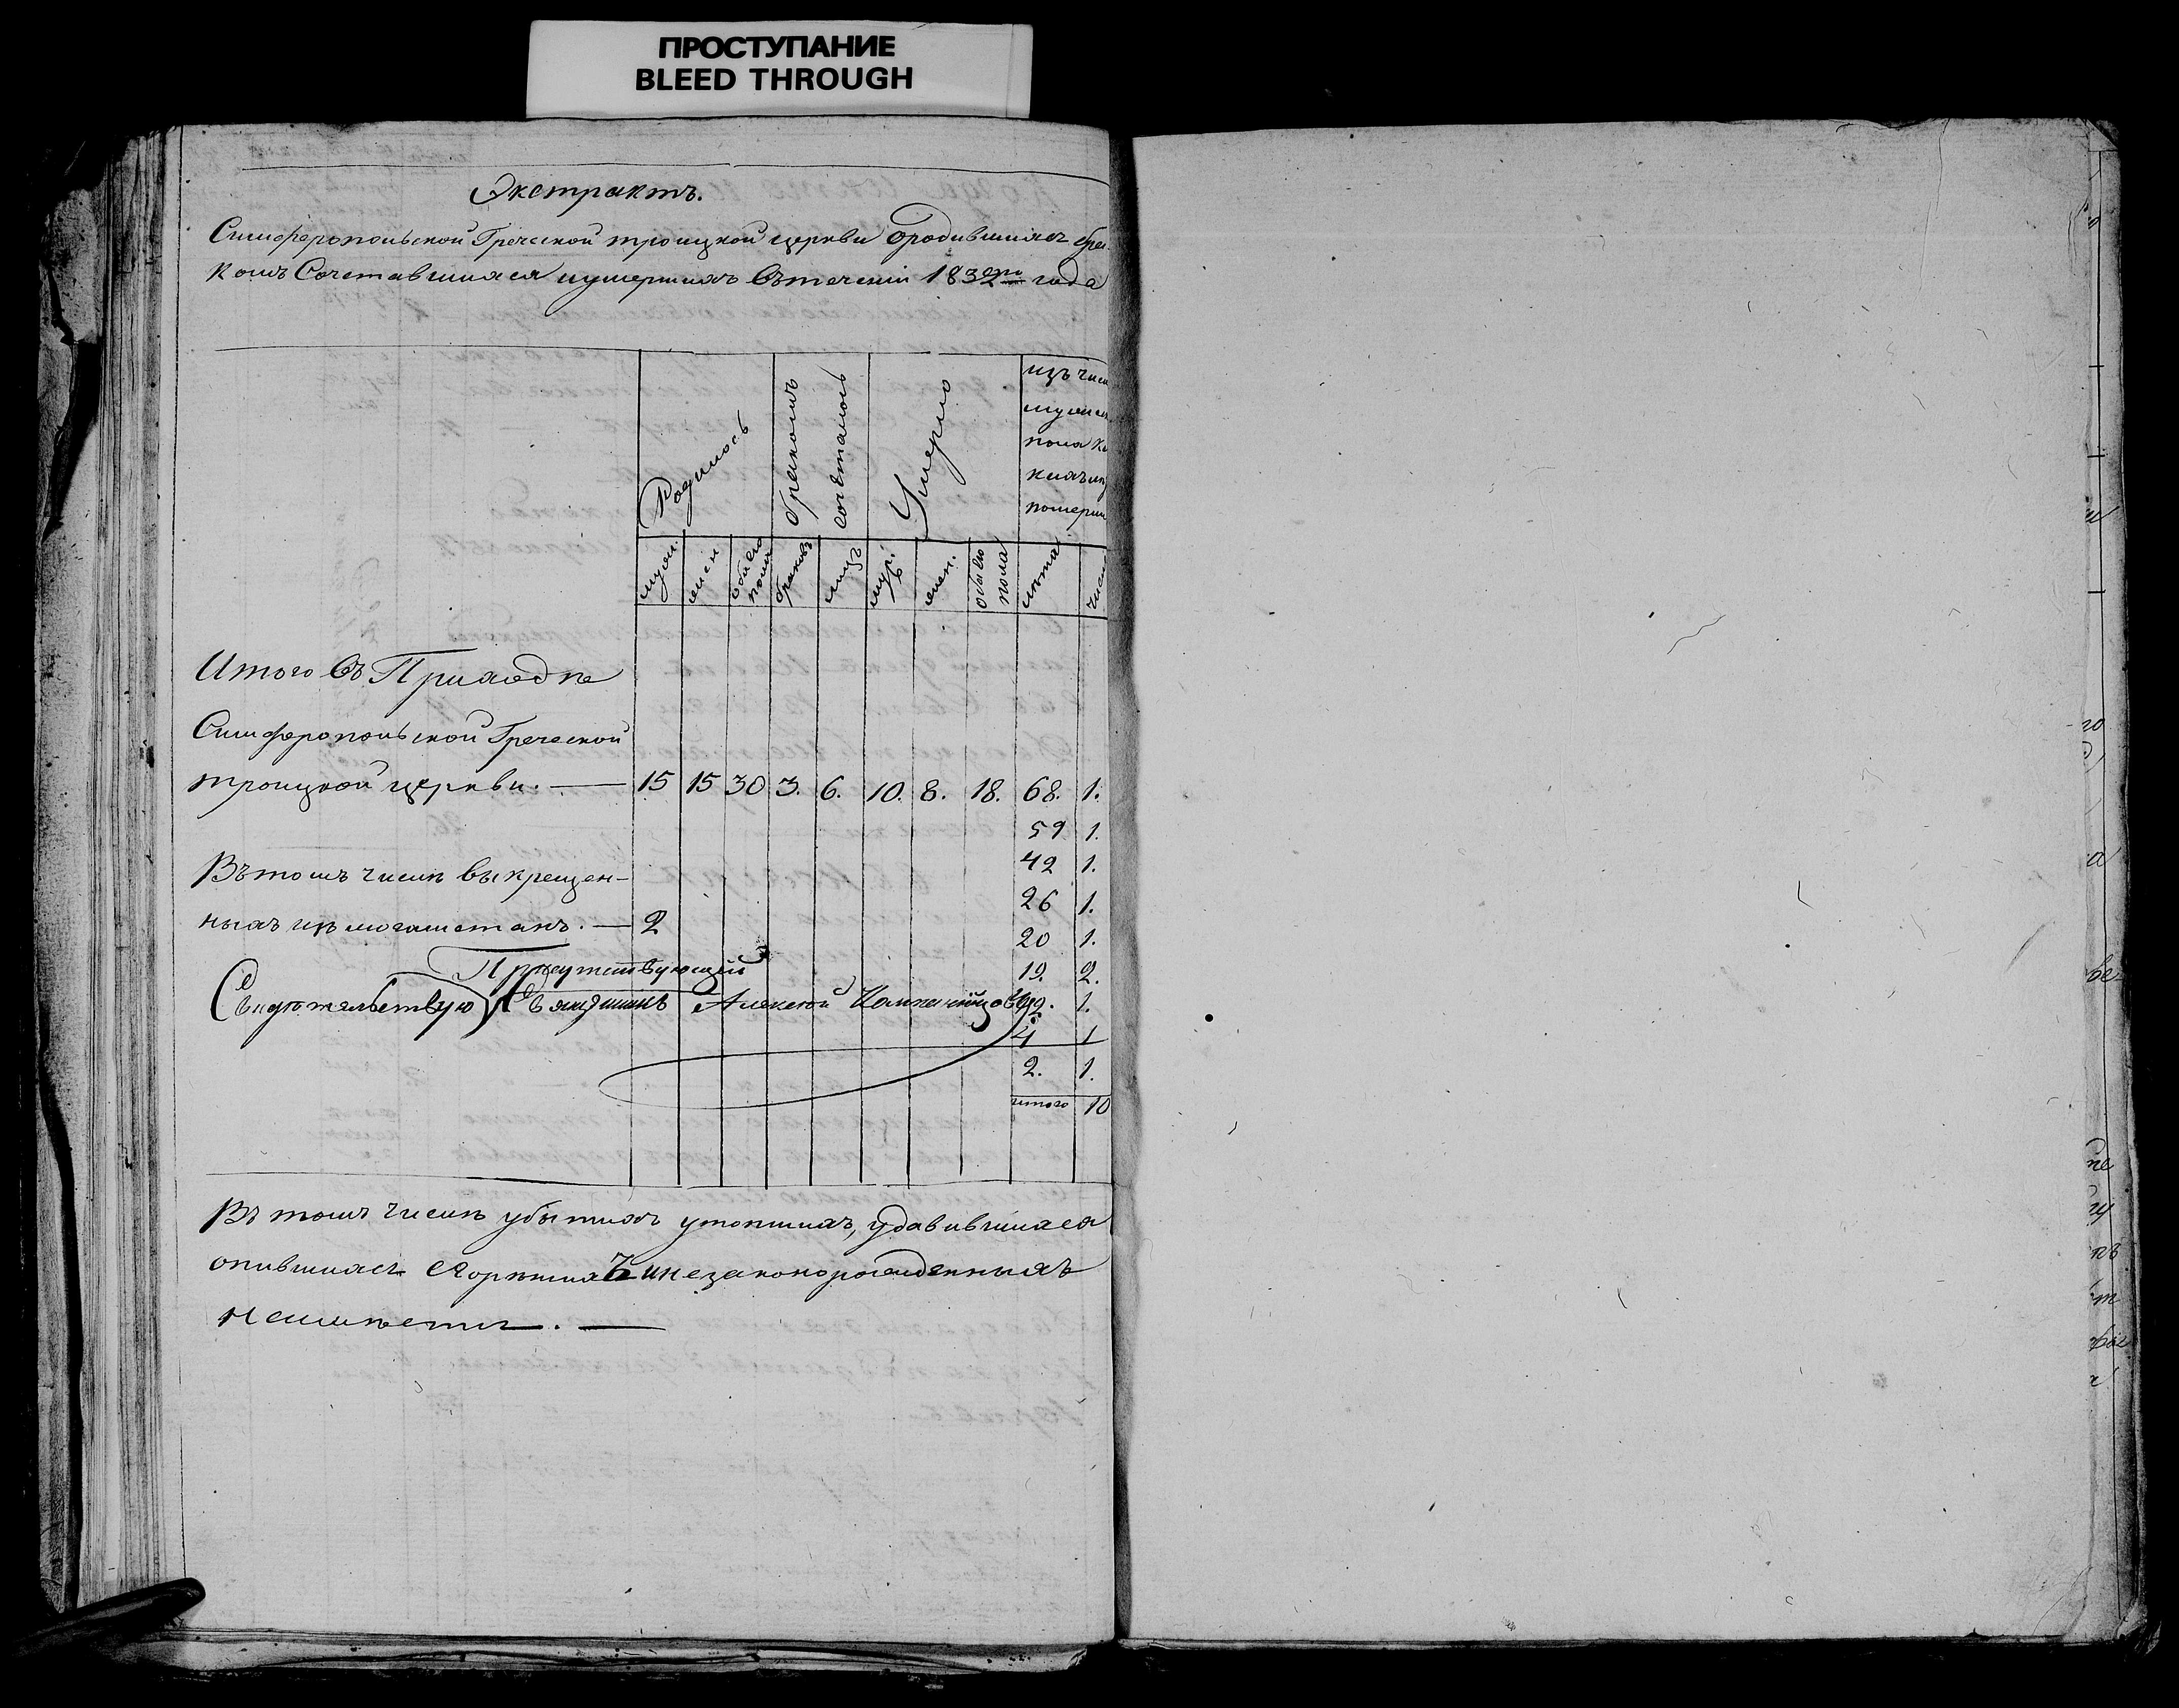 ПРОСТУПАНИЕ
BLEED THROUGH
Экстрактъ.
Симферопольской Греческой троицкой церкви о родившихся бра
комъ Сочетавшихся и умершихъ въ теченіи 1832го года
Родилось
бракомъ
сочеталось
Умерло
изъ числ
мужеск
пола ка
кихъ лѣт
померли
муж.
жен
обоего пола
браковъ
лицъ
муж.
жен.
обоего пола
лѣта
число
Итого въ Приходѣ
Симферопольской Греческой
троицкой церкви. — 15 15 30 3. 6. 10. 8. 18. 68. 1.
59 1.
42 1.
Въ томъ числѣ выкрещен-
26 1.
ныхъ изъ могаметанъ. — 2
20 1.
Присутствующій
19. 2.
Свидѣтельствую Священникъ Алексей
1.
4 1
2. 1.
итого 10
Въ томъ числѣ убытихъ утопшихъ, удавившихся
опившихся сгорѣвшихъ и незаконорожденныхъ
неимѣется. —